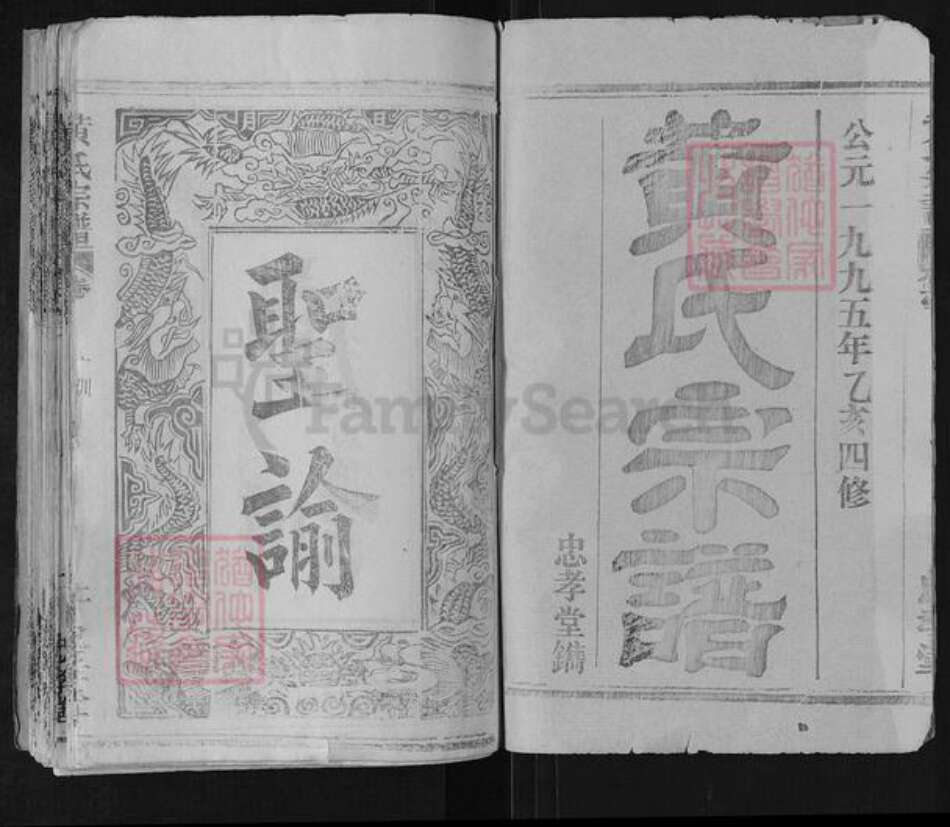 公元一九九五年乙亥四修
黃氏宗譜
忠孝堂鐫
聖諭
黃氏宗譜
FamilySearch